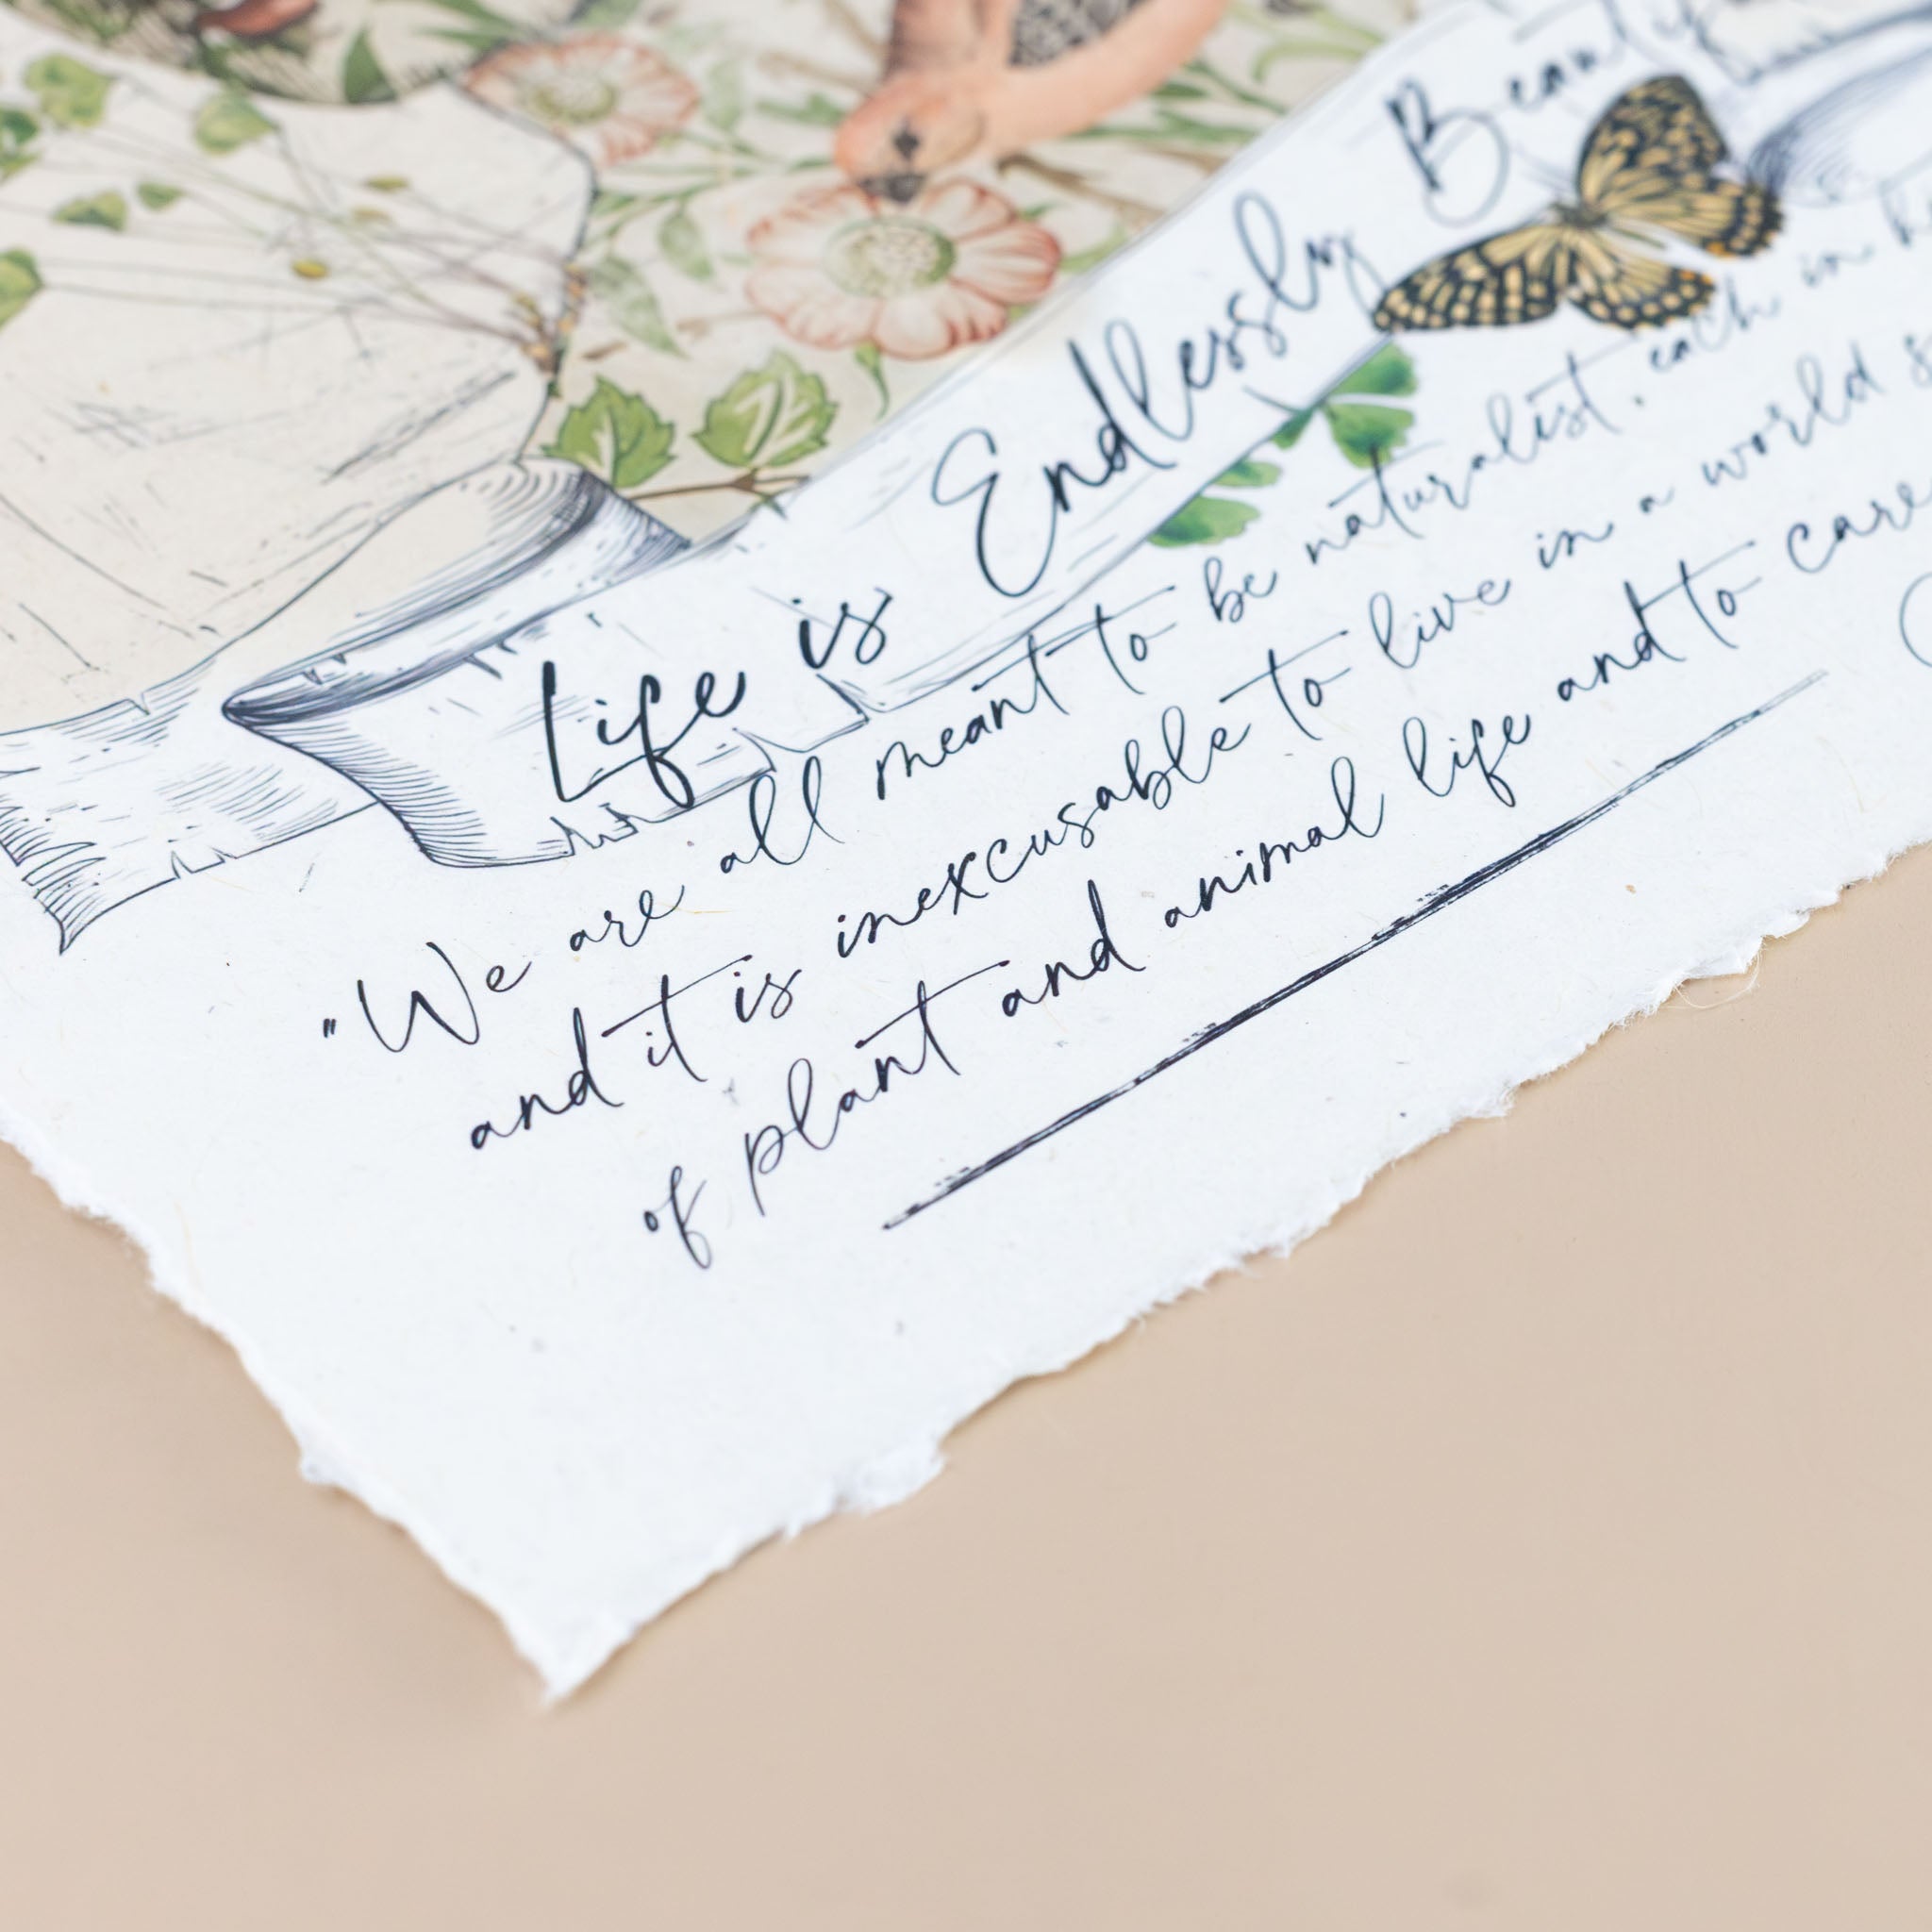 Life is Endlessly
"We are all meant to be naturalist. each in
and it is inexcusable to live in a world
of plant and animal life and to care